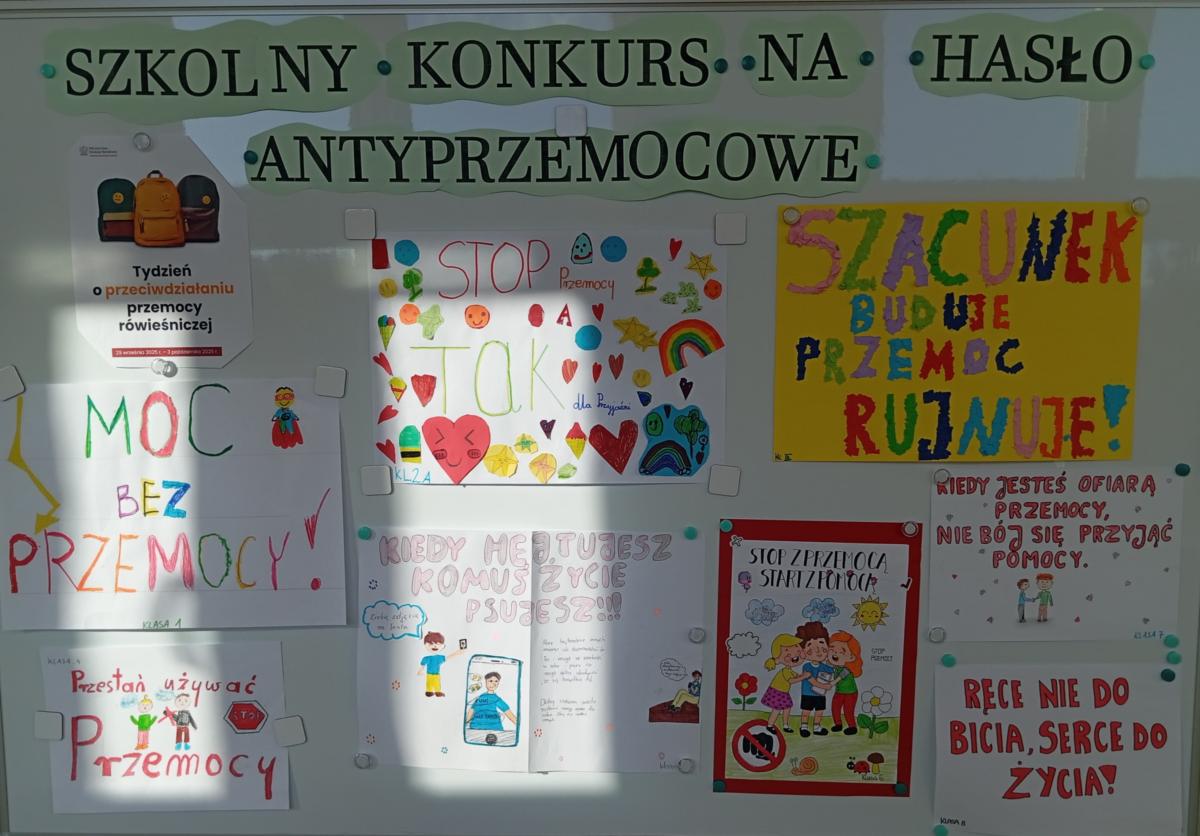 SZKOLNY KONKURS NA HASŁO
ANTYPRZEMOCOWE
Tydzień
o przeciwdziałaniu
przemocy
rówieśniczej
29 września 2025 r. - 3 października 2025 r.
STOP Przemocy
A
TAK
dla Przyjaźni
KL2A
SZACUNEK
BUDUJE
PRZEMOC
RUJNUJE!
MOC
BEZ
PRZEMOCY!
KLASA 1
KIEDY HEJTUJESZ
KOMUŚ ŻYCIE
PSUJESZ!!!
STOP Z PRZEMOCĄ
START Z POMOCĄ
STOP
PRZEMOCY
Klasa 6
KIEDY JESTEŚ OFIARĄ
PRZEMOCY,
NIE BÓJ SIĘ PRZYJĄĆ
POMOCY.
KLASA 7
KLASA 4
Przestań używać
STOP
Przemocy
RĘCE NIE DO
BICIA, SERCE DO
ŻYCIA!
KLASA 8